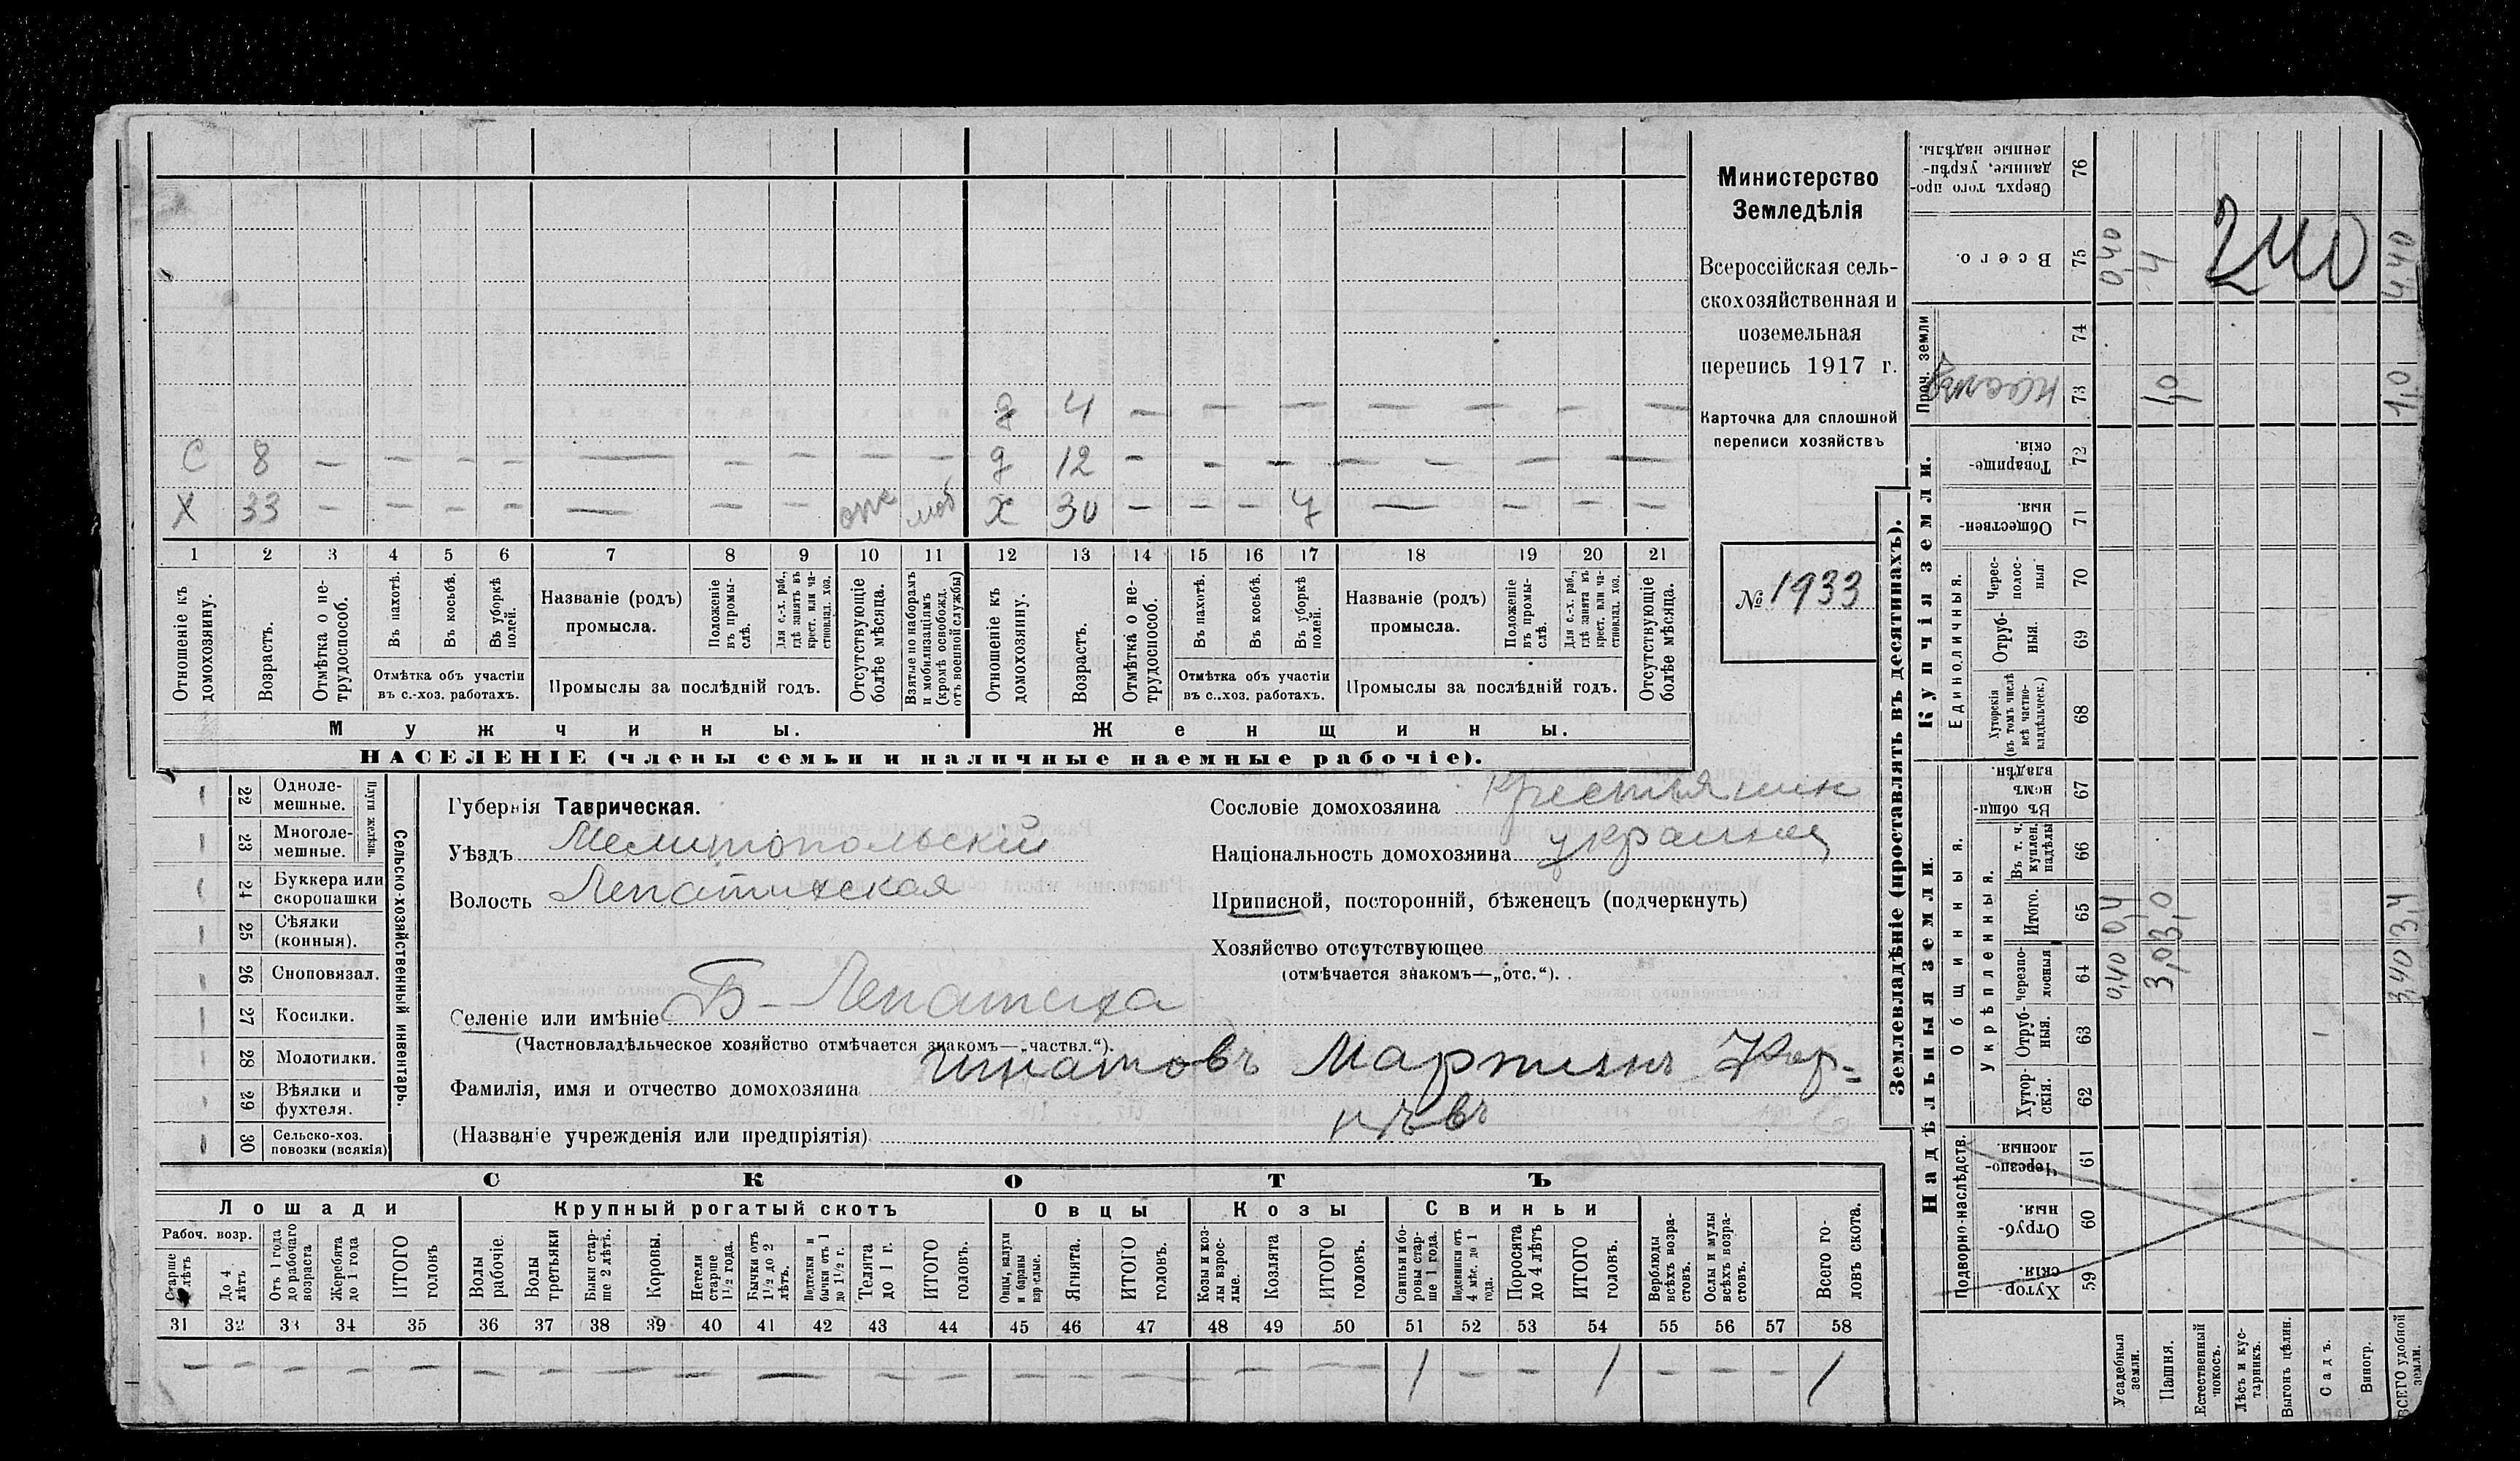 Министерство
Земледѣлія
Всероссійская сель-
скохозяйственная и
поземельная
перепись 1917 г.
Карточка для сплошной
переписи хозяйствъ
№ 1933
д 4 — — — — — — — —
С 8 — — — — — — — — — д 12 — — — — — — — —
Х 33 — — — — — — — моб Х 30 — — — У — — — —
1 2 3 4 5 6 7 8 9 10 11 12 13 14 15 16 17 18 19 20 21
Отношеніе къ домохозяину.
Возрастъ.
Отмѣтка о не-трудоспособ.
Въ пахотѣ.
Въ косьбѣ.
Въ уборкѣ полей.
Отмѣтка объ участіи
въ с.-хоз. работахъ.
Названіе (родъ)
промысла.
Положеніе въ промы-слѣ.
Для с.-х. раб., гдѣ занятъ въ крест. или ча-стновлад. хоз.
Промыслы за послѣдній годъ.
Отсутствующіе болѣе мѣсяца.
Взятые по наборамъ и мобилизаціямъ (кромѣ освобожд. отъ военной службы)
Отношеніе къ домохозяину.
Возрастъ.
Отмѣтка о не-трудоспособ.
Въ пахотѣ.
Въ косьбѣ.
Въ уборкѣ полей.
Отмѣтка объ участіи
въ с.-хоз. работахъ.
Названіе (родъ)
промысла.
Положеніе въ промы-слѣ.
Для с.-х. раб., гдѣ занята въ крест. или ча-стновлад. хоз.
Промыслы за послѣдній годъ.
Отсутствующіе болѣе мѣсяца.
Мужчины.
Женщины.
НАСЕЛЕНІЕ (члены семьи и наличные наемные рабочіе).
Сельско-хозяйственный инвентарь.
Плуги желѣзн.
22 Одноле-мешные.
23 Многоле-мешные.
24 Буккера или скоропашки
25 Сѣялки (конныя).
26 Сноповязал.
27 Косилки.
28 Молотилки.
29 Вѣялки и фухтеля.
30 Сельско-хоз. повозки (всякія)
Губернія Таврическая.
Уѣздъ Мелитопольскій
Волость Лепатихская
Селеніе или имѣніе Б-Лепатиха
(Частновладѣльческое хозяйство отмѣчается знакомъ—„частвл.“).
Фамилія, имя и отчество домохозяина Игнатовъ Мартинъ Кар-
пѣвъ
(Названіе учрежденія или предпріятія)
Сословіе домохозяина Крестьянин
Національность домохозяина украинец
Приписной, посторонній, бѣженецъ (подчеркнуть)
Хозяйство отсутствующее
(отмѣчается знакомъ—„отс.“).
СКОТЪ
Лошади
Крупный рогатый скотъ
Овцы
Козы
Свиньи
Рабоч. возр.
Старше 4 лѣтъ
До 4 лѣтъ
Отъ 1 года до рабочаго возраста
Жеребята до 1 года
ИТОГО головъ
Волы рабочіе.
Волы третьяки
Быки стар-ше 2 лѣтъ.
Коровы.
Нетели старше 1½ года.
Бычки отъ 1½ до 2 лѣтъ.
Телята до 1 г.
ИТОГО головъ.
Овцы, валухи и бараны взрослые.
Ягнята.
ИТОГО головъ.
Козы и коз-лы взрос-лые.
Козлята
ИТОГО головъ.
Свиньи и бо-ровы стар-ше 1 года.
Подсвинки отъ 4 мѣс. до 1 года.
Поросята
ИТОГО головъ.
Верблюды всѣхъ возра-стовъ.
Ослы и мулы всѣхъ возра-стовъ.
Всего го-ловъ скота.
31 32 33 34 35 36 37 38 39 40 41 42 43 44 45 46 47 48 49 50 51 52 53 54 55 56 57 58
— — — — — — — — — — — — — — — — — — — — 1 — — 1 — — — 1
Землевладѣніе (проставлять въ десятинахъ).
Купчія земли.
Надѣльныя земли.
Сверхъ того про-данные, укрѣп-ленные надѣлы. 76
Всего. 75 0,40 4 4,40
240
Проч. земли 74
73 1,0 1,0
Товарище-скія. 72
Обществен-ныя. 71
Единоличныя.
Черес-полос-ныя 70
Отруб-ныя. 69
Хуторскія (въ томъ числѣ всѣ частно-владѣльческ.) 68
Общинныя.
Въ общин-номъ владѣн. 67
Укрѣпленныя.
Въ т. ч. куплен. надѣлы 66
Итого. 65 0,4 3,0 3,4
черезпо-лосныя 64 0,40 3,0 3,40
Отруб-ныя. 63
Хутор-скія. 62
Подворно-наслѣдств.
Черезпо-лосныя 61
Отруб-ныя. 60
Хутор-скія. 59
Усадебныя земли.
Пашня.
Естественный покосъ.
Лѣсъ и кус-тарникъ.
Выгонъ цѣлин.
Садъ.
Виногр.
ВСЕГО удобной земли.